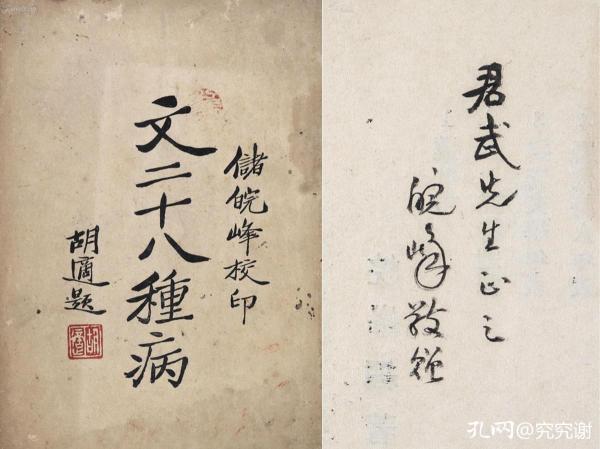 儲皖峰校印
文二十八種病
胡適題
君武先生正之
皖峰敬贈
孔网@究究谢